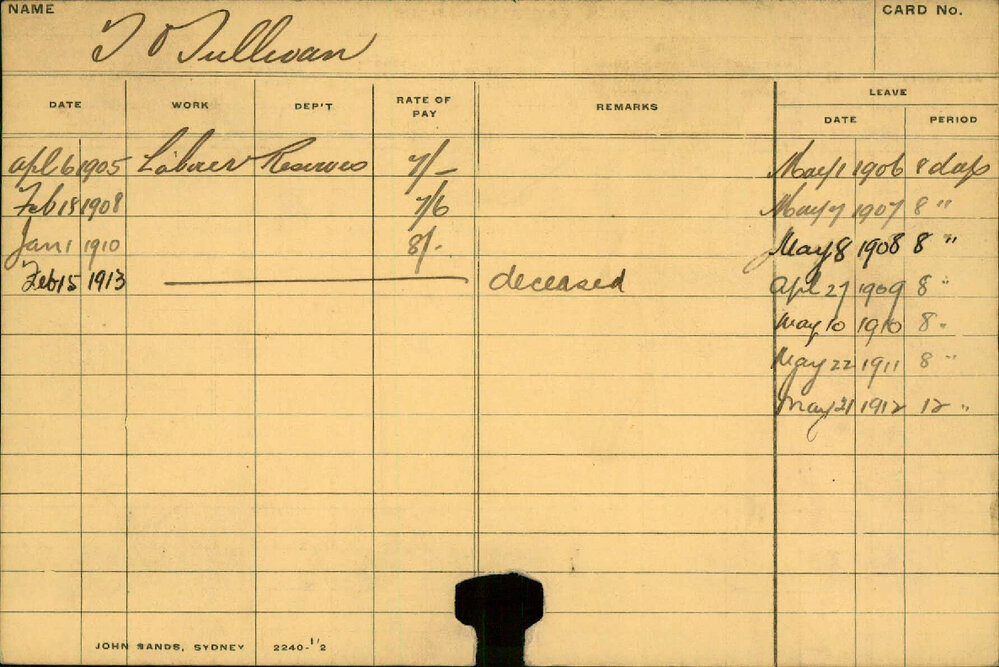 NAME
T O'Sullivan
CARD No.
DATE WORK DEP'T RATE OF PAY REMARKS LEAVE
DATE PERIOD
Apl 6 1905 Labourer Reserves 7/- May 1 1906 8 days
Feb 18 1908 7/6 May 7 1907 8 "
Jan 1 1910 8/- May 8 1908 8 "
Feb 15 1913 deceased Apl 27 1909 8 "
May 10 1910 8 "
May 22 1911 8 "
May 21 1912 12 "
JOHN SANDS, SYDNEY 2240-1/2